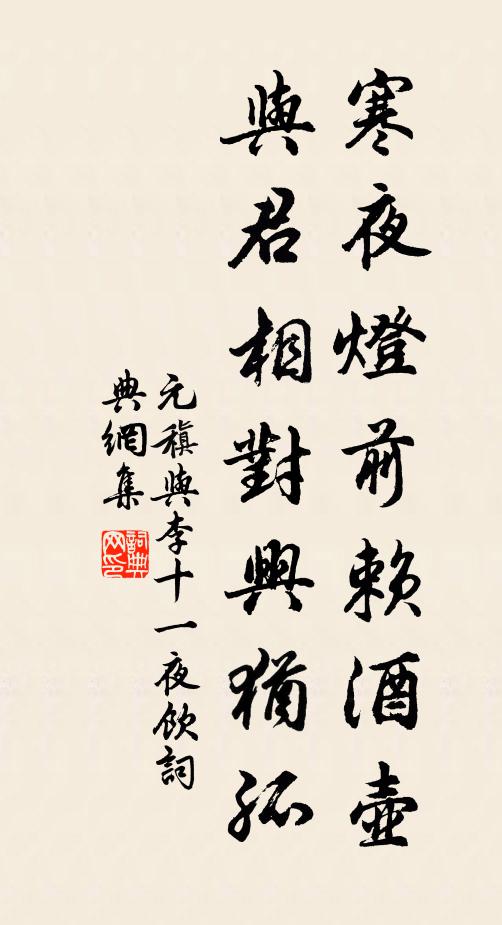 寒夜燈前賴酒壺
與君相對興猶孤
元稹與李十一夜飲詞
典網集
詞典
网印